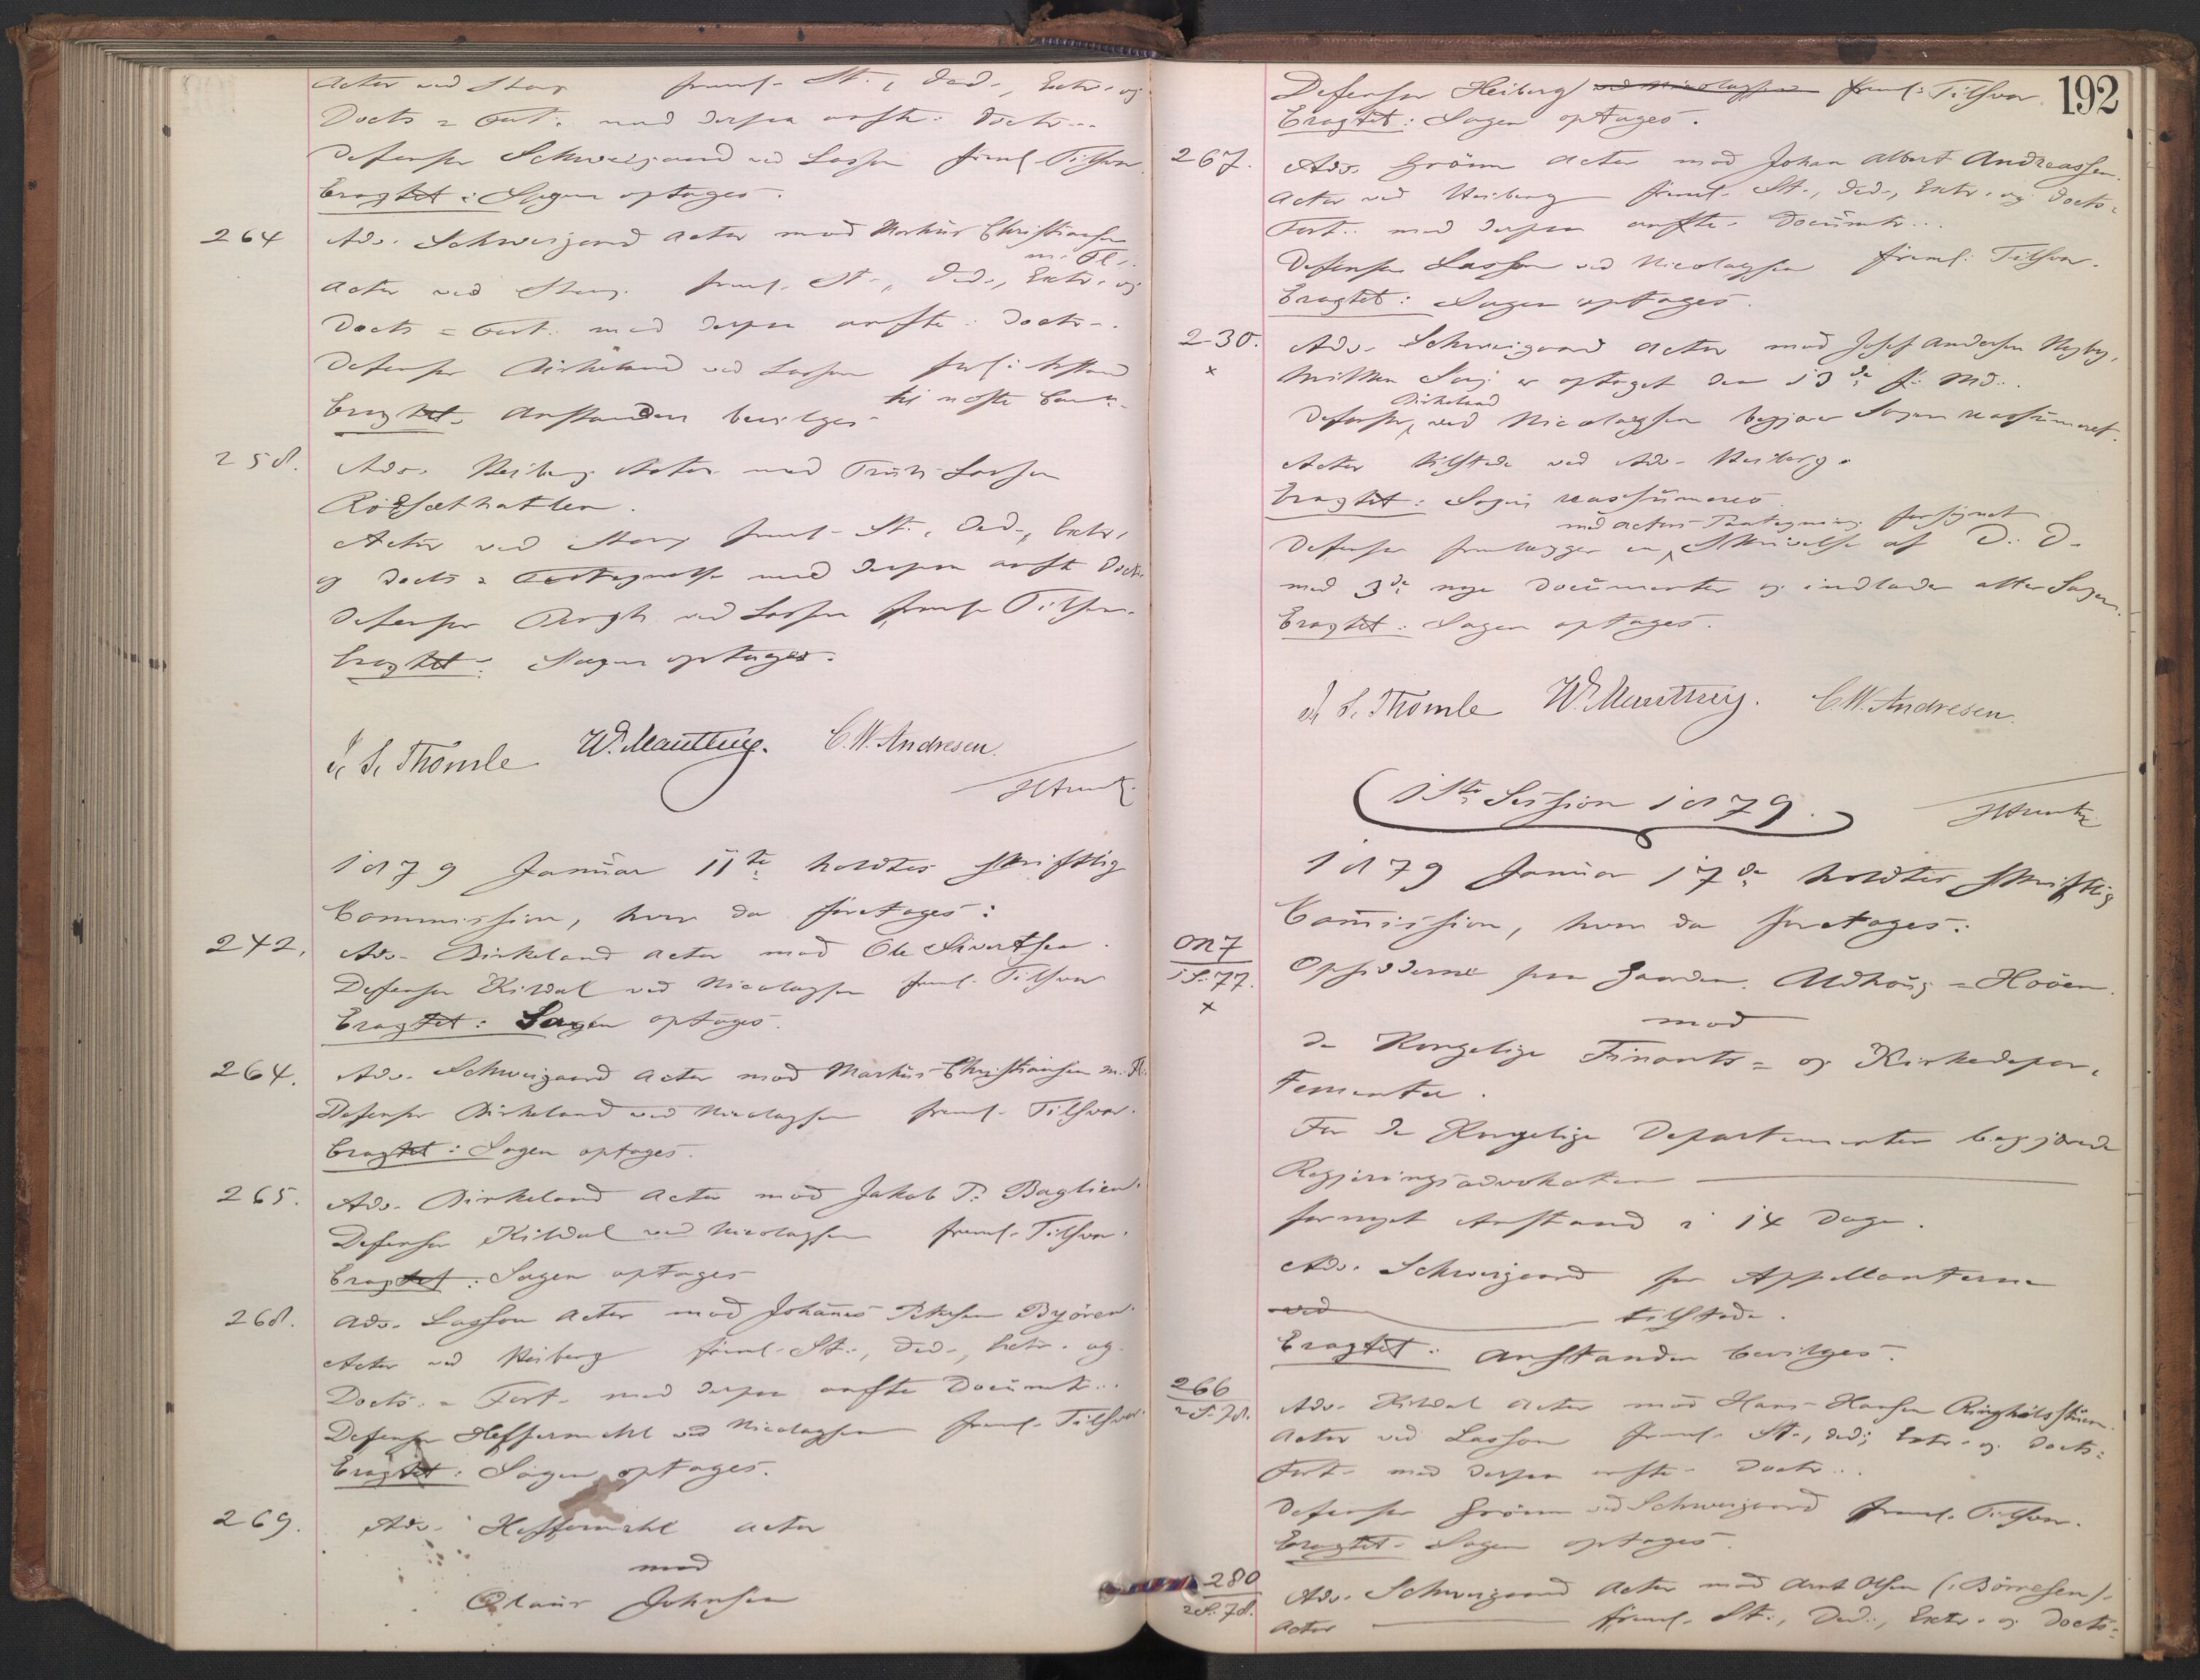 Actor ved Stang freml. St., Ded., Extr. og
Docts = Fort. med derpaa anfte. Docts...
Defensor Schweigaard ved Lasson freml. Tilsvar.
Eragtet: Sagen optages.
264 Adv. Schweigaard Actor mod Markus Christiansen
m. Fl.
Actor ved Stang freml. St., Ded., Extr. og
Docts = Fort. med derpaa anfte. Docts..
Defensor Birkeland ved Lasson Anstand
til næste
Eragtet. Anstanden bevilges
258. Adv. Heiberg Actor mod Lassen
Rödsæthatlen.
Actor ved Stang freml. St., Ded., Extr.
og Docts = Fortegnelse med derpaa anft Docts
Defensor Bergh ved Lasson freml. Tilsvar.
Eragtet: Sagen optages.
J. S. Thomle W. Manthey. C. W. Andresen.
1879 Januar 11te holdtes skriftlig
Commission, hvor da foretages:
242. Adv. Birkeland Actor mod Ole Sivertsen.
Defensor Kildal ved Nicolaysen freml. Tilsvar
Eragtet: Sagen optages.
264. Adv. Schweigaard Actor mod Markus Christiansen m. Fl.
Defensor Birkeland ved Nicolaysen freml. Tilsvar.
Eragtet: Sagen optages.
265. Adv. Birkeland Actor mod Jakob P. Baglien.
Defensor Kildal ved Nicolaysen freml. Tilsvar.
Eragtet: Sagen optages
268. Adv. Lasson Actor mod Johanes Petersen Byören.
Actor ved Heiberg freml. St., Ded., Extr. og
Docts. = Fort. med derpaa anfte Documtr...
Defensor Heffermehl ved Nicolaysen freml. Tilsvar.
Eragtet: Sagen optages.
269. Adv. Heffermehl Actor
mod
Olaus Johnsen
192
Defensor Heiberg ved Nicolaysen freml. Tilsvar.
Eragtet: Sagen optages.
267. Adv. Grönn Actor mod Johan Albert Andreassen.
Actor ved Heiberg freml. St., Ded., Extr. og Docts =
Fort. med derpaa anfte. Documtr...
Defensor Lasson ved Nicolaysen freml. Tilsvar.
Eragtet: Sagen optages.
230. Adv. Schweigaard Actor mod Josef Andersen Nyby,
x
hvilken Sag er optaget den 13de f. Md..
Birkeland
Defensor ved Nicolaysen begjærer Sagen reassumeret.
Actor tilstede ved Adv. Heiberg.
Eragtet: Sagen reassumeres
med Actors Paategning forsynet
Defensor fremlægger en Skrivelse af D. D.
med 3de nye Documenter og indlader atter Sagen.
Eragtet: Sagen optages.
J. S. Thomle W. Manthey. C. W. Andresen.
1ste Session 1879.
1879 Januar 17de holdtes skriftlig
Comission, hvor da foretages:
ON7
1S.77.
x
Opsidderne paa Gaarden Aldhoug = Hoöen.
mod
de Kongelige Finants = og Kirkedepar,
tementer.
For de Kongelige Departementer begjærede
Regjeringsadvokaten
fornyet Anstand i 14 Dage.
Adv. Schweigaard for Appellanterne
ved tilstede.
Eragtet: Anstanden bevilges.
266
2S.78.
Adv. Kildal Actor mod Hans Hansen
Actor ved Lasson freml. St., Ded., Extr. og Docts =
Fort. med derpaa anfte. Docts...
Defensor Grönn ved Schweigaard freml. Tilsvar.
Eragtet. Sagen optages.
280
2S.78.
Adv. Schweigaard Actor mod Arnt Olsen (Börresen).
Actor freml. St., Ded., Extr. og Docts =